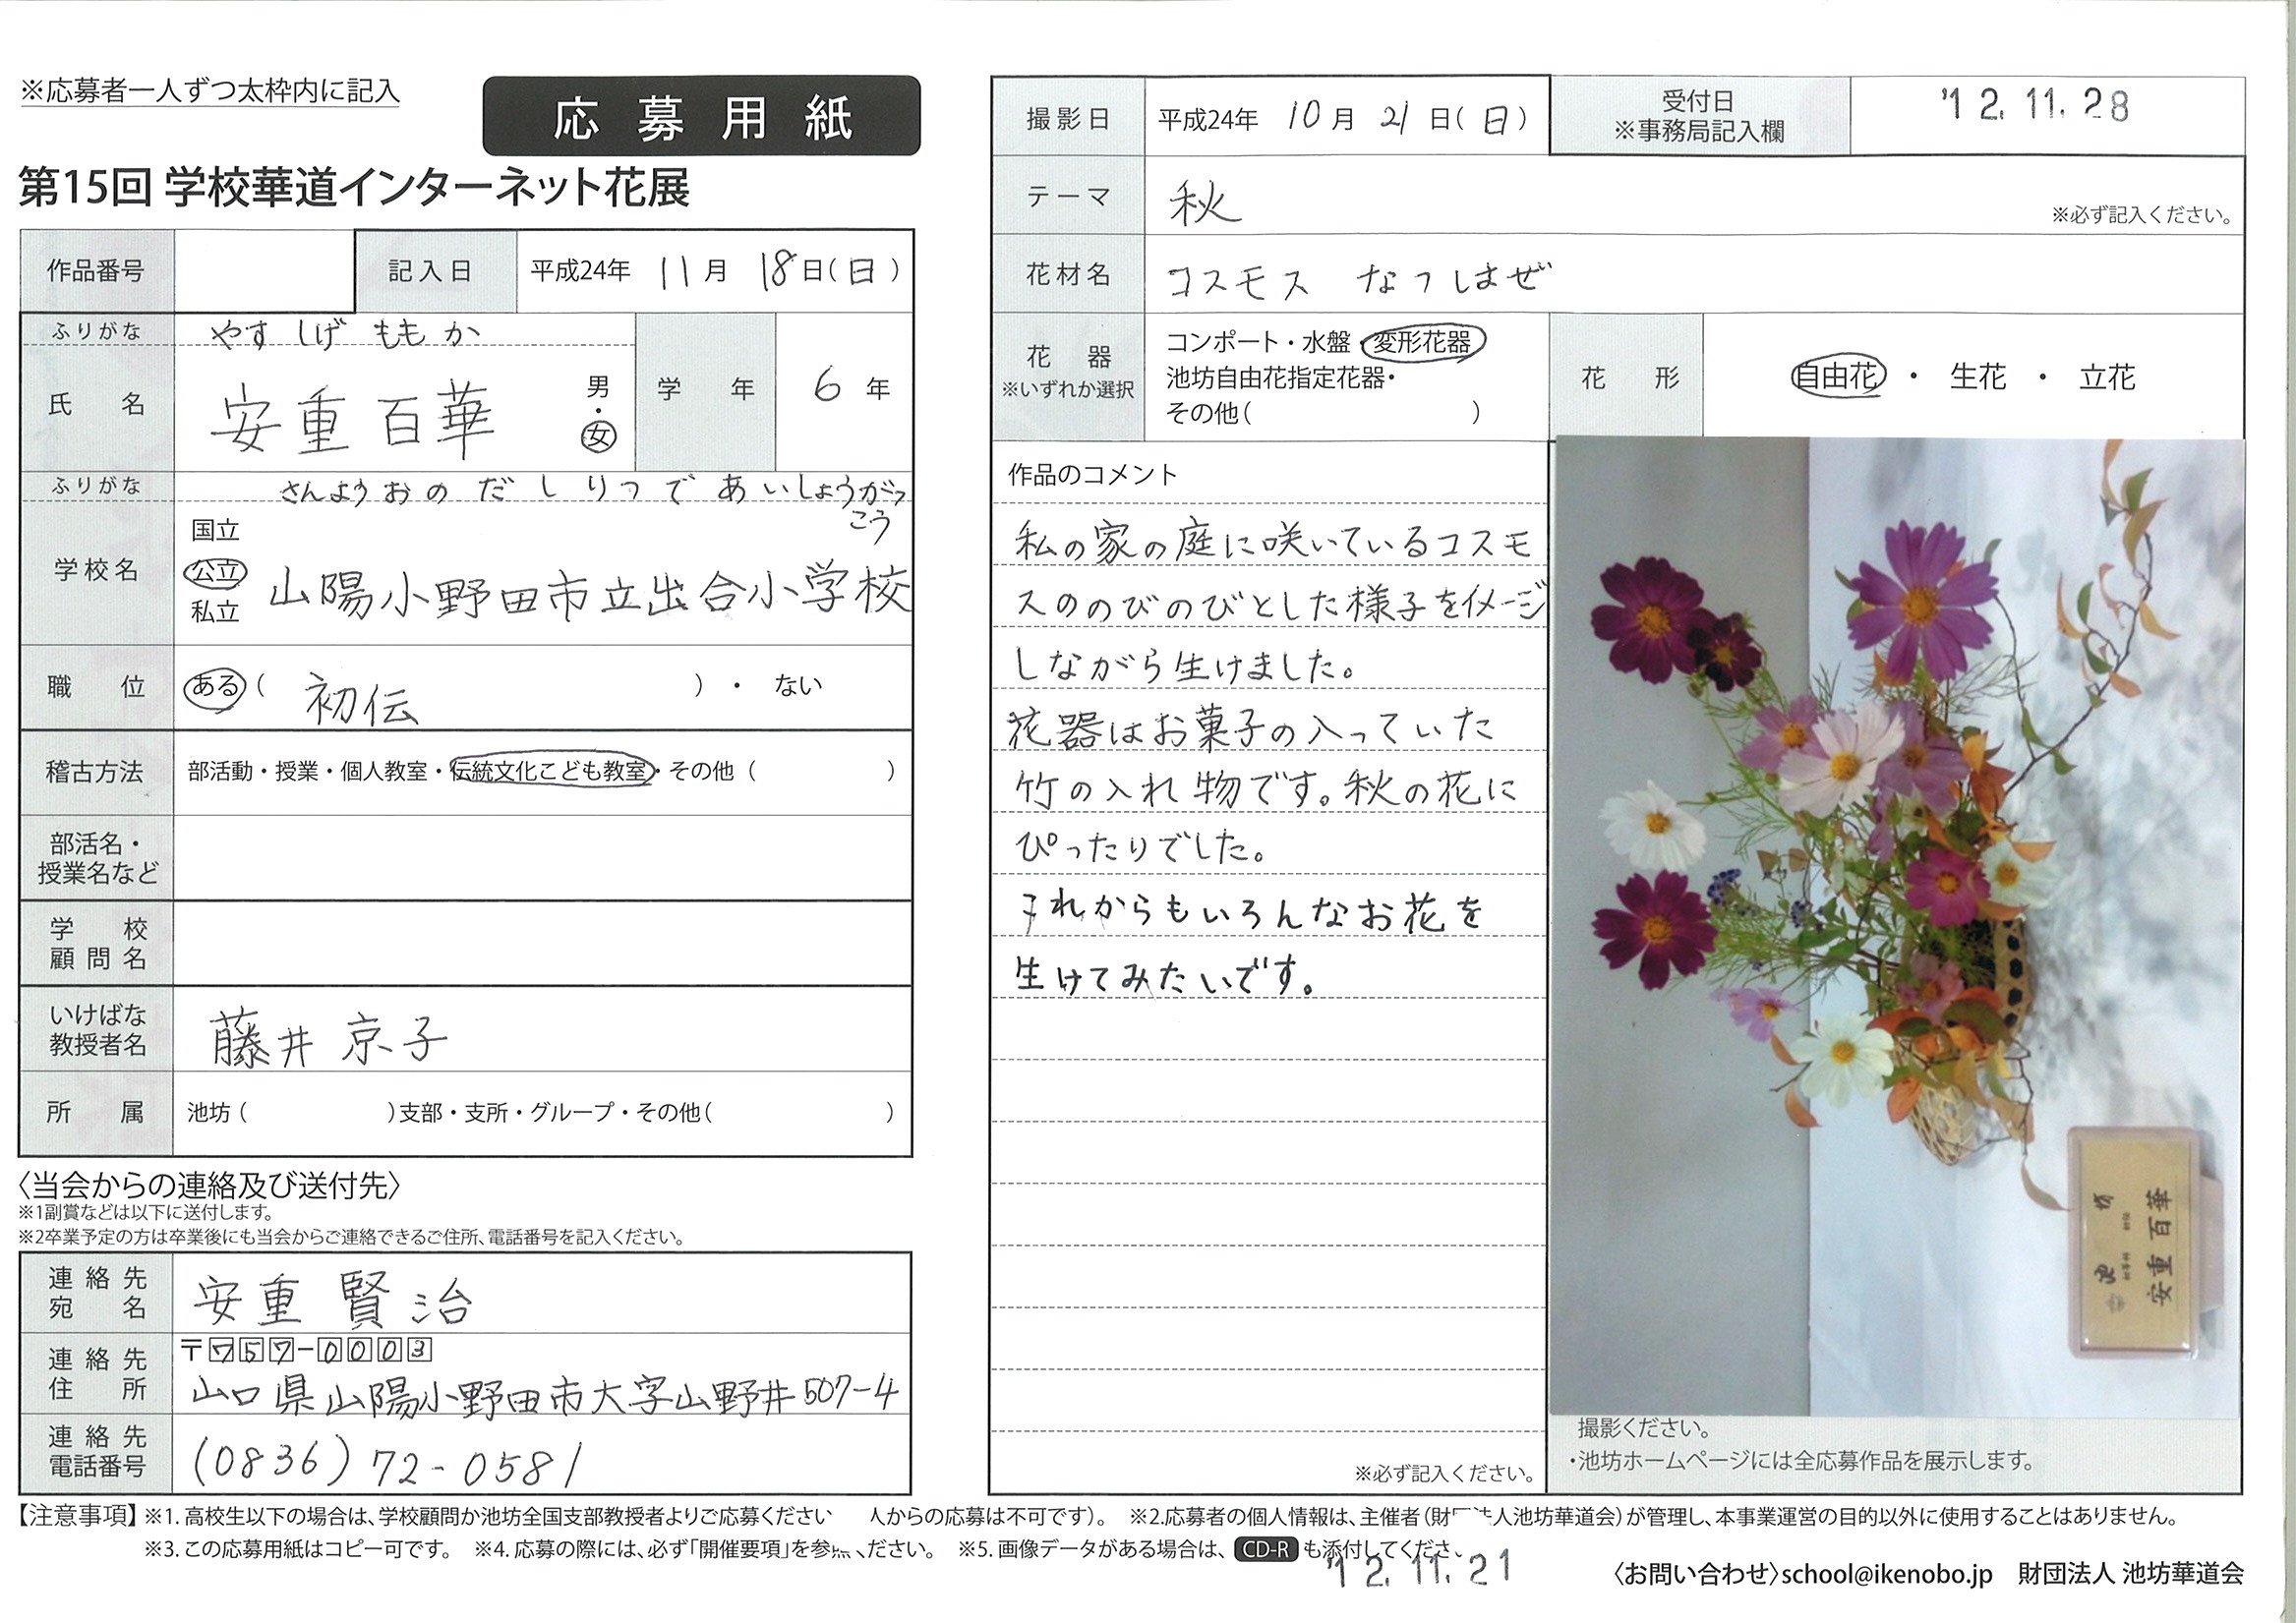 ※応募者一人ずつ太枠内に記入
応募用紙
第15回 学校華道インターネット花展
作品番号
記入日 平成24年 11月 18日(日)
ふりがな やすしげ ももか
氏名 安重百華 男・女
学年 6年
ふりがな さんようおのだしりつであいしょうがっ
こう
学校名 国立
公立 山陽小野田市立出合小学校
私立
職位 ある( 初伝 )・ ない
稽古方法 部活動・授業・個人教室・伝統文化こども教室・その他( )
部活名・
授業名など
学校
顧問名
いけばな
教授者名 藤井京子
所属 池坊( )支部・支所・グループ・その他( )
〈当会からの連絡及び送付先〉
※1副賞などは以下に送付します。
※2卒業予定の方は卒業後にも当会からご連絡できるご住所、電話番号を記入ください。
連絡先
宛名 安重賢治
〒757-0003
連絡先
住所 山口県山陽小野田市大字山野井507-4
連絡先
電話番号 (0836)72-0581
撮影日 平成24年 10月 21日(日)
受付日
※事務局記入欄
'12.11.28
テーマ 秋 ※必ず記入ください。
花材名 コスモス なつはぜ
花器
※いずれか選択
コンポート・水盤・変形花器
池坊自由花指定花器・
その他( )
花形 自由花 ・ 生花 ・ 立花
作品のコメント
私の家の庭に咲いているコスモ
スののびのびとした様子をイメージ
しながら生けました。
花器はお菓子の入っていた
竹の入れ物です。秋の花に
ぴったりでした。
これからもいろんなお花を
生けてみたいです。
※必ず記入ください。
池坊
安重百華
撮影ください。
・池坊ホームページには全応募作品を展示します。
【注意事項】※1. 高校生以下の場合は、学校顧問か池坊全国支部教授者よりご応募ください 人からの応募は不可です)。 ※2.応募者の個人情報は、主催者(財 法人池坊華道会)が管理し、本事業運営の目的以外に使用することはありません。
※3. この応募用紙はコピー可です。 ※4. 応募の際には、必ず「開催要項」を参 ください。 ※5. 画像データがある場合は、CD-Rも添付してください
'12.11.21
〈お問い合わせ〉school@ikenobo.jp 財団法人 池坊華道会